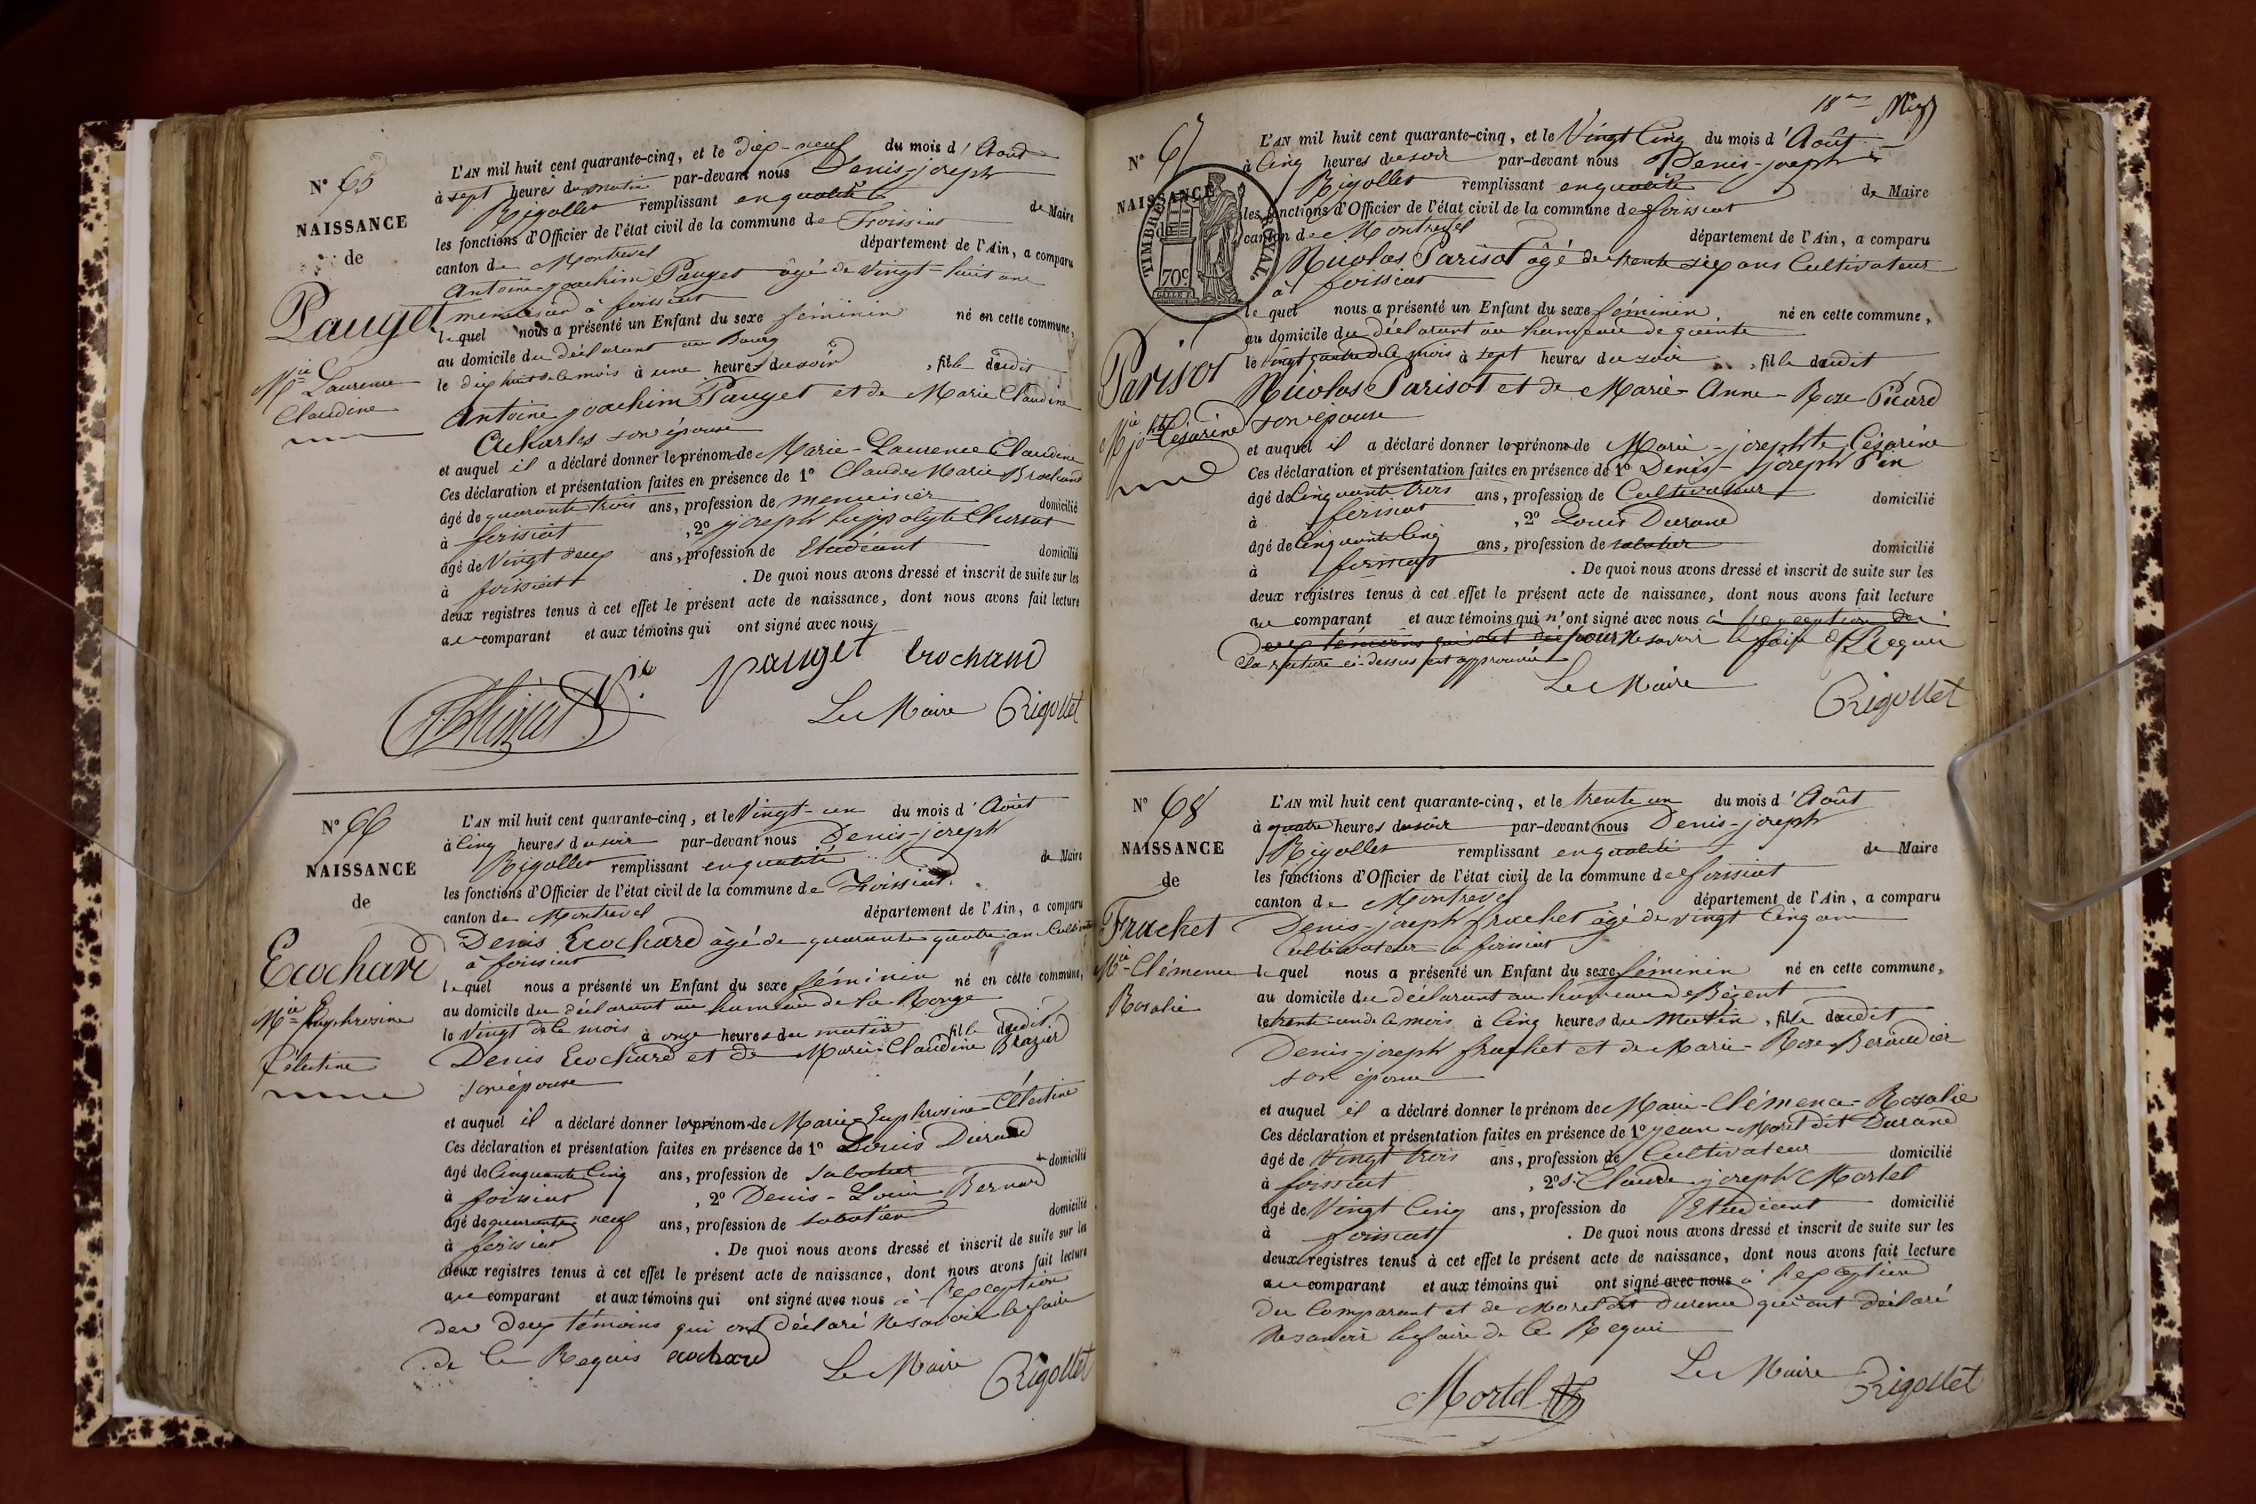 N° 65
NAISSANCE
de
Pauget
Mie Laurence
Claudine
L'AN mil huit cent quarante-cinq, et le dix-neuf du mois d'Aout
à sept heures du matin par-devant nous Denis-joseph
Rigollet remplissant en qualité de Maire
les fonctions d'Officier de l'état civil de la commune de Foissiat
canton de Montrevel département de l'Ain, a comparu
Antoine joachim Pauget âgé de Vingt-huit ans
menuisier à foissiat
lequel nous a présenté un Enfant du sexe féminin né en cette commune,
au domicile du déclarant au Bourg
le dix huit de ce mois à une heure du soir, fille dudit
Antoine joachim Pauget et de Marie Claudine
son épouse
et auquel il a déclaré donner le prénom de Marie-Laurence Claudine
Ces déclaration et présentation faites en présence de 1° Claude Marie Brochand
âgé de quarante trois ans, profession de menuisier domicilié
à foissiat, 2° joseph hippolyte Chirat
âgé de Vingt deux ans, profession de Etudiant domicilié
à foissiat. De quoi nous avons dressé et inscrit de suite sur les
deux registres tenus à cet effet le présent acte de naissance, dont nous avons fait lecture
au comparant et aux témoins qui ont signé avec nous
pauget brochand
Le Maire Rigollet
N° 66
NAISSANCE
de
Ecochard
Mie Euphrosine
Célestine
L'AN mil huit cent quarante-cinq, et le Vingt-un du mois d'Août
à Cinq heures du soir par-devant nous Denis-joseph
Rigollet remplissant en qualité de Maire
les fonctions d'Officier de l'état civil de la commune de Foissiat
canton de Montrevel département de l'Ain, a comparu
Denis Ecochard âgé de quarante quatre ans Cultivateur
à foissiat
lequel nous a présenté un Enfant du sexe féminin né en cette commune,
au domicile du déclarant au hameau de la Ronge
le Vingt de ce mois à onze heures du matin fille dudit
Denis Ecochard et de Marie-Claudine Brazier
son épouse
et auquel il a déclaré donner le prénom de Marie-Euphrosine-Célestine
Ces déclaration et présentation faites en présence de 1° Louis Durand
âgé de Cinquante Cinq ans, profession de sabotier domicilié
à foissiat, 2° Denis-Louis Bernard
âgé de quarante neuf ans, profession de sabotier domicilié
à foissiat. De quoi nous avons dressé et inscrit de suite sur les
deux registres tenus à cet effet le présent acte de naissance, dont nous avons fait lecture
au comparant et aux témoins qui ont signé avec nous à l'exception
des deux témoins qui ont déclaré ne savoir le faire
de Ce Requis ecochard Le Maire Rigollet
N° 67
NAISSANCE
TIMBRE ROYAL
70c
Parisot
Mie jophte Césarine
L'AN mil huit cent quarante-cinq, et le Vingt Cinq du mois d'Août
à Cinq heures du soir par-devant nous Denis-joseph
Rigollet remplissant en qualité de Maire
les fonctions d'Officier de l'état civil de la commune de foissiat
canton de Montrevel département de l'Ain, a comparu
Nicolas Parisot âgé de trente six ans Cultivateur
à foissiat
lequel nous a présenté un Enfant du sexe féminin né en cette commune,
au domicile du déclarant au hameau de
le Vingt quatre de ce mois à sept heures du soir, fille dudit
Nicolas Parisot et de Marie-Anne-Roze Picard
son épouse
et auquel il a déclaré donner le prénom de Marie-josephte Césarine
Ces déclaration et présentation faites en présence de 1° Denis-joseph Pin
âgé de Cinquante trois ans, profession de Cultivateur domicilié
à foissiat, 2° Louis Durand
âgé de Cinquante Cinq ans, profession de sabotier domicilié
à foissiat. De quoi nous avons dressé et inscrit de suite sur les
deux registres tenus à cet effet le présent acte de naissance, dont nous avons fait lecture
au comparant et aux témoins qui n'ont signé avec nous à l'exception des
deux témoins qui ont pour ne savoir le faire de Ce Requis
la rature ci-dessus est approuvée
Le Maire Rigollet
N° 68
NAISSANCE
de
Frachet
Mie Clémence
Rosalie
L'AN mil huit cent quarante-cinq, et le trente un du mois d'Août
à quatre heures du soir par-devant nous Denis-joseph
Rigollet remplissant en qualité de Maire
les fonctions d'Officier de l'état civil de la commune de foissiat
canton de Montrevel département de l'Ain, a comparu
Denis-joseph frachet âgé de vingt Cinq ans
Cultivateur à foissiat
lequel nous a présenté un Enfant du sexe féminin né en cette commune,
au domicile du déclarant au hameau de
le trente un de ce mois à Cinq heures du Matin, fille dudit
Denis-joseph frachet et de Marie-Roze Beraudier
son épouse
et auquel il a déclaré donner le prénom de Marie-Clémence-Rosalie
Ces déclaration et présentation faites en présence de 1° jean-Morel dit Durand
âgé de Vingt trois ans, profession de Cultivateur domicilié
à foissiat, 2° Claude joseph Mortel
âgé de Vingt Cinq ans, profession de Etudiant domicilié
à foissiat. De quoi nous avons dressé et inscrit de suite sur les
deux registres tenus à cet effet le présent acte de naissance, dont nous avons fait lecture
au comparant et aux témoins qui ont signé avec nous à l'exception
du Comparant et de Morel dit Durand qui ont déclaré
ne savoir le faire de Ce Requis
Le Maire Rigollet
Mortel